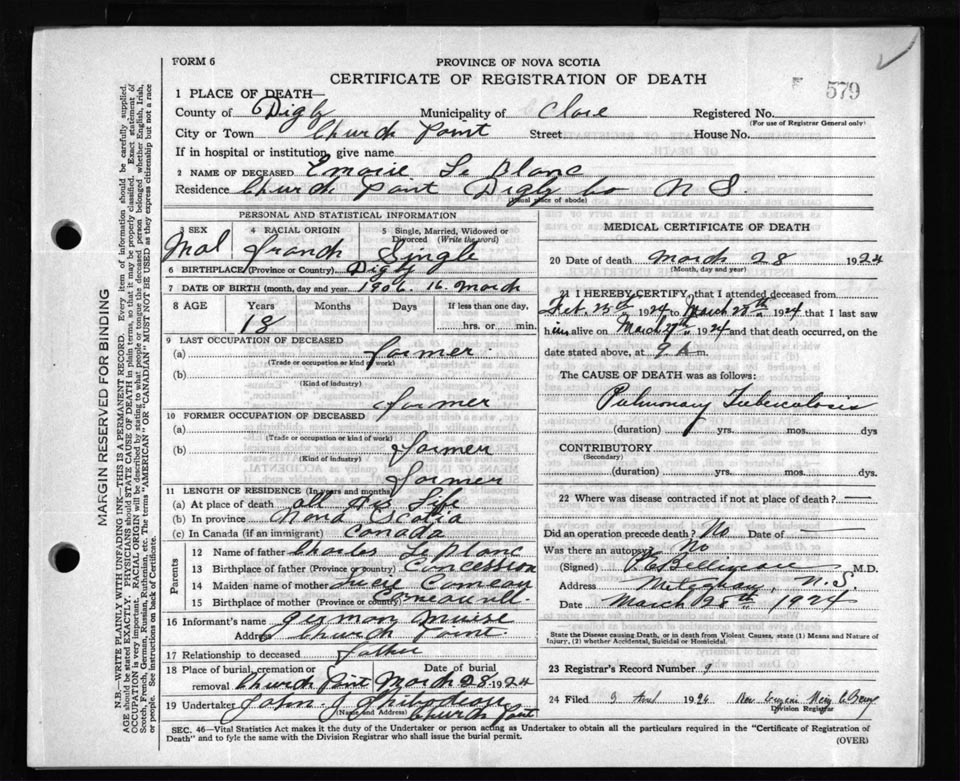 FORM 6
PROVINCE OF NOVA SCOTIA
CERTIFICATE OF REGISTRATION OF DEATH
579
1 PLACE OF DEATH—
County of Digby Municipality of Clare Registered No.
(For use of Registrar General only)
City or Town Church Point Street House No.
If in hospital or institution, give name
2 NAME OF DECEASED Le Blanc
Residence Church Point Digby Co N S.
(Usual place of abode)
PERSONAL AND STATISTICAL INFORMATION
3 SEX 4 RACIAL ORIGIN 5 Single, Married, Widowed or Divorced (Write the word)
Mal franch Single
6 BIRTHPLACE (Province or Country) Digby
7 DATE OF BIRTH (month, day and year. 1906. 16. March
8 AGE Years Months Days If less than one day.
18 hrs. or min.
9 LAST OCCUPATION OF DECEASED
(a) farmer
(Trade or occupation or kind of work)
(b)
(Kind of industry)
farmer
10 FORMER OCCUPATION OF DECEASED
(a)
(Trade or occupation or kind of work)
(b) farmer
(Kind of industry)
farmer
11 LENGTH OF RESIDENCE (In years and months)
(a) At place of death all his Life
(b) In province Nova Scotia
(c) In Canada (if an immigrant) Canada
Parents
12 Name of father Charles Le Blanc
13 Birthplace of father (Province or country) Concession
14 Maiden name of mother Comeau
15 Birthplace of mother (Province or country)
16 Informant's name Muise
Address Church Point
17 Relationship to deceased father
18 Place of burial, cremation or removal Church Point Date of burial March 28 1924
19 Undertaker John
(Name and Address) Church Point
MEDICAL CERTIFICATE OF DEATH
20 Date of death March 28 1924
(Month, day and year)
21 I HEREBY CERTIFY, that I attended deceased from
Feb. 25th 1924 to March 28th 1924 that I last saw
him alive on March 1924 and that death occurred, on the
date stated above, at 9 A m.
The CAUSE OF DEATH was as follows:
Pulmonary Tuberculosis
(duration) yrs. mos. dys
CONTRIBUTORY
(Secondary)
(duration) yrs. mos. dys.
22 Where was disease contracted if not at place of death?
Did an operation precede death? No Date of
Was there an autopsy No
(Signed) Belliveau M.D.
Address Meteghan, N.S.
Date March 28th 1924
State the Disease causing Death, or in death from Violent Causes, state (1) Means and Nature of
Injury, (2) whether Accidental, Suicidal or Homicidal.
23 Registrar's Record Number 9
24 Filed 1924
Division Registrar
SEC. 46—Vital Statistics Act makes it the duty of the Undertaker or person acting as Undertaker to obtain all the particulars required in the "Certificate of Registration of
Death" and to fyle the same with the Division Registrar who shall issue the burial permit.
(OVER)
MARGIN RESERVED FOR BINDING
N.B.—WRITE PLAINLY WITH UNFADING INK—THIS IS A PERMANENT RECORD. Every item of information should be carefully supplied.
AGE should be stated EXACTLY. PHYSICIANS should STATE CAUSE OF DEATH in plain terms, so that it may be properly classified. Exact statement of
OCCUPATION is very important. RACIAL ORIGIN will be described by stating to what people or tongue the deceased person belonged whether English, Irish,
Scotch, French, German, Russian, Ruthenian, etc. The terms "AMERICAN" or "CANADIAN" MUST NOT BE USED as they express citizenship but not a race
or people. See instructions on back of Certificate.